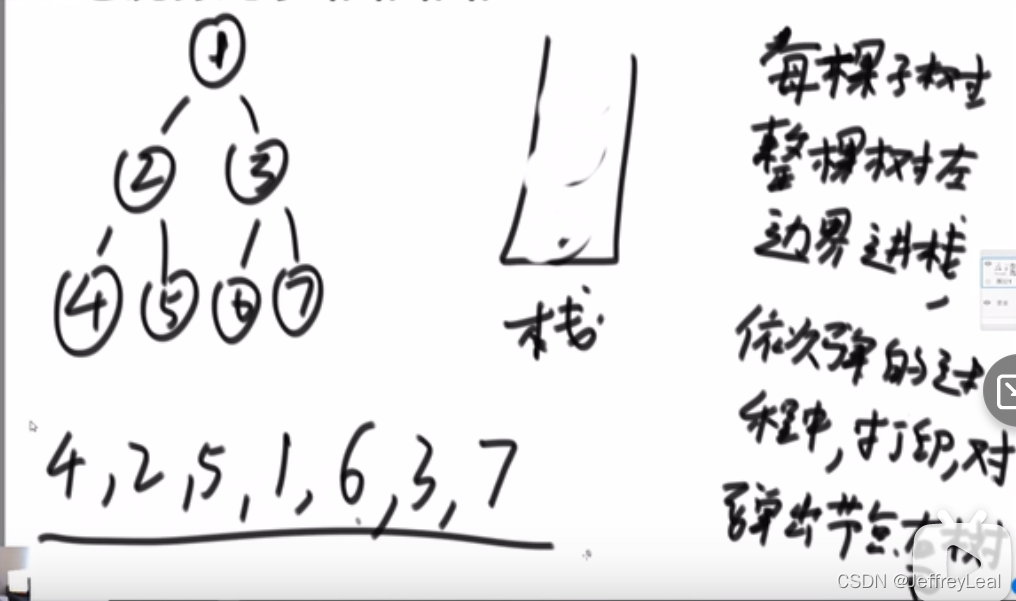 1
2 3
4 5 6 7
栈
4,2,5,1,6,3,7
每棵子树
整棵树左
边界进栈,
依次弹的过
程中,打印,对
弹出节点右树
CSDN @JeffreyLeal